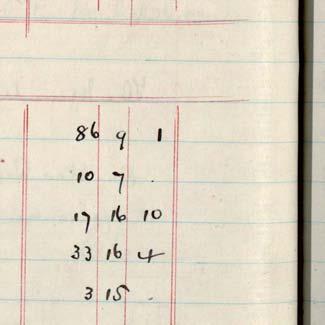 86 9 1
10 7 .
17 16 10
33 16 4
3 15 .